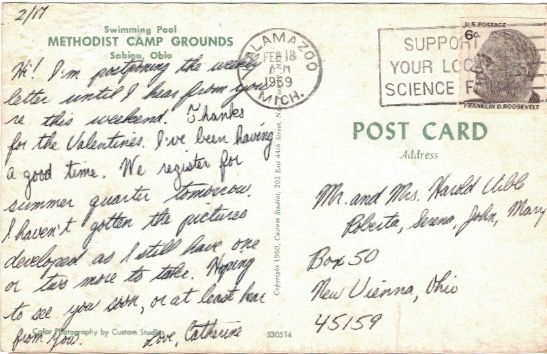 2/17
Swimming Pool
METHODIST CAMP GROUNDS
Sabina, Ohio
Hi! I'm postponing the weekly
letter until I hear from you
re this weekend. Thanks
for the Valentines. I've been having
a good time. We register for
summer quarter tomorrow.
I haven't gotten the pictures
developed as I still have one
or two more to take. Hoping
to see you soon, or at least hear
from you. Love, Catharine
Color Photography by Custom Studios
Copyright 1960, Custom Studios, 202 East 44th Street, N.
S30514
KALAMAZOO
FEB 18
AM
1969
MICH.
SUPPORT
YOUR LOCAL
SCIENCE F
U.S. POSTAGE
6c
FRANKLIN D. ROOSEVELT
POST CARD
Address
Mr. and Mrs. Harold Uible
Roberta, Serena, John, Mary
Box 50
New Vienna, Ohio
45159